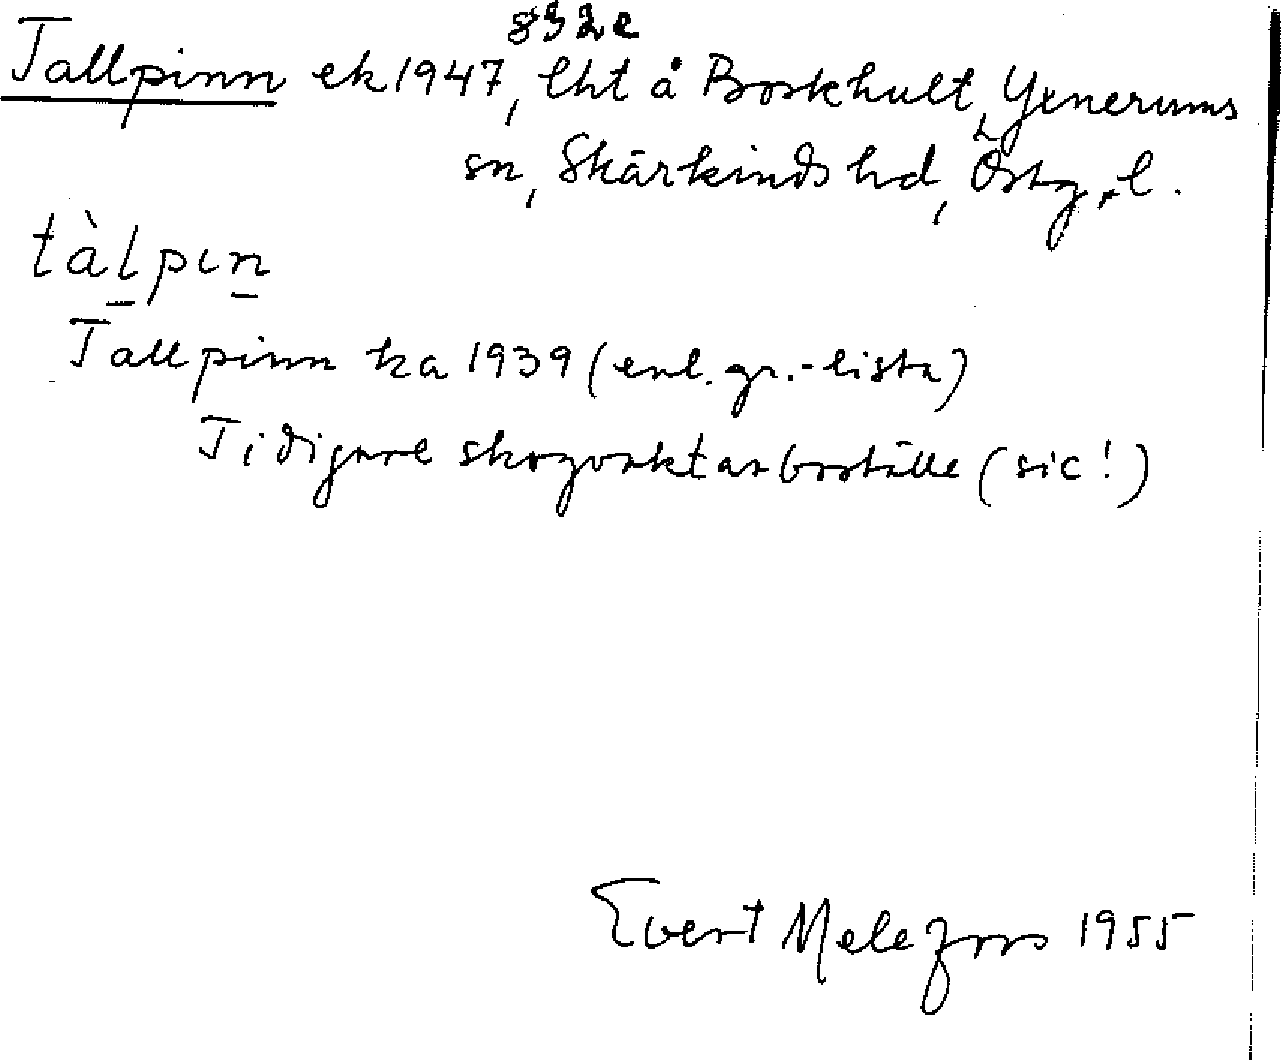 8S2e
Tallpinn ek 1947, lht å Borkhult, Yxnerums
sn, Skärkinds hd, Östg. l.
tàlpın
Tallpinn ka 1939 (enl. gr.-lista)
Tidigare skogvaktarboställe (sic!)
Evert Melefors 1955